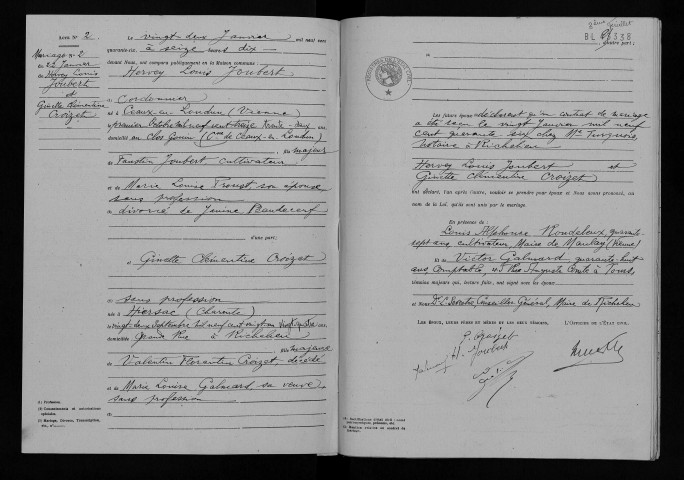 ACTE N° 2
Mariage N° 2
du 22 Janvier
Hervey Louis
Joubert
et
Ginette Clémentine
Croizet
Le vingt-deux Janvier mil neuf cent
quarante-six, à seize heures dix
devant Nous, ont comparu publiquement en la Maison commune :
Hervey Louis Joubert
Cordonnier
né à Ceaux en Loudun (Vienne)
le premier Octobre mil neuf cent treize trente-deux ans,
domicilié au Clos Gouin (Cne de Ceaux en Loudun)
fils majeur
de Faustin Joubert cultivateur
et de Marie Louise Proust, son épouse
sans profession
divorcé de Janine
d'une part ;
et Ginette Clémentine Croizet
sans profession
née à Hiersac (Charente)
le vingt deux Septembre mil neuf cent vingt un
domiciliée Grande Rue à Richelieu
fille majeure
de Valentin Florentin Croizet, décédé
et de Marie Louise Galmard sa veuve
sans profession
(1) Profession.
BL 338
d'autre part ;
Les futurs époux déclarent qu'un contrat de mariage
a été reçu le vingt Janvier mil neuf
cent quarante six chez Me
Notaire à Richelieu
Hervey Louis Joubert et
Ginette Clémentine Croizet
ont déclaré, l'un après l'autre, vouloir se prendre pour époux et Nous avons prononcé, au
nom de la Loi, qu'ils sont unis par le mariage.
En présence de :
Louis Alphonse Rondeleux, quarante-
sept ans cultivateur, Maire de Maulay (Vienne)
Et de Victor Galmard quarante huit
ans comptable, 43 Rue Auguste Comte à Tours
témoins majeurs qui, lecture faite, ont signé avec les époux
et Nous Conseiller Général, Maire de Richelieu
LES ÉPOUX, LEURS PÈRES ET MÈRES ET LES DEUX TÉMOINS, L'OFFICIER DE L'ÉTAT CIVIL,
H. Joubert